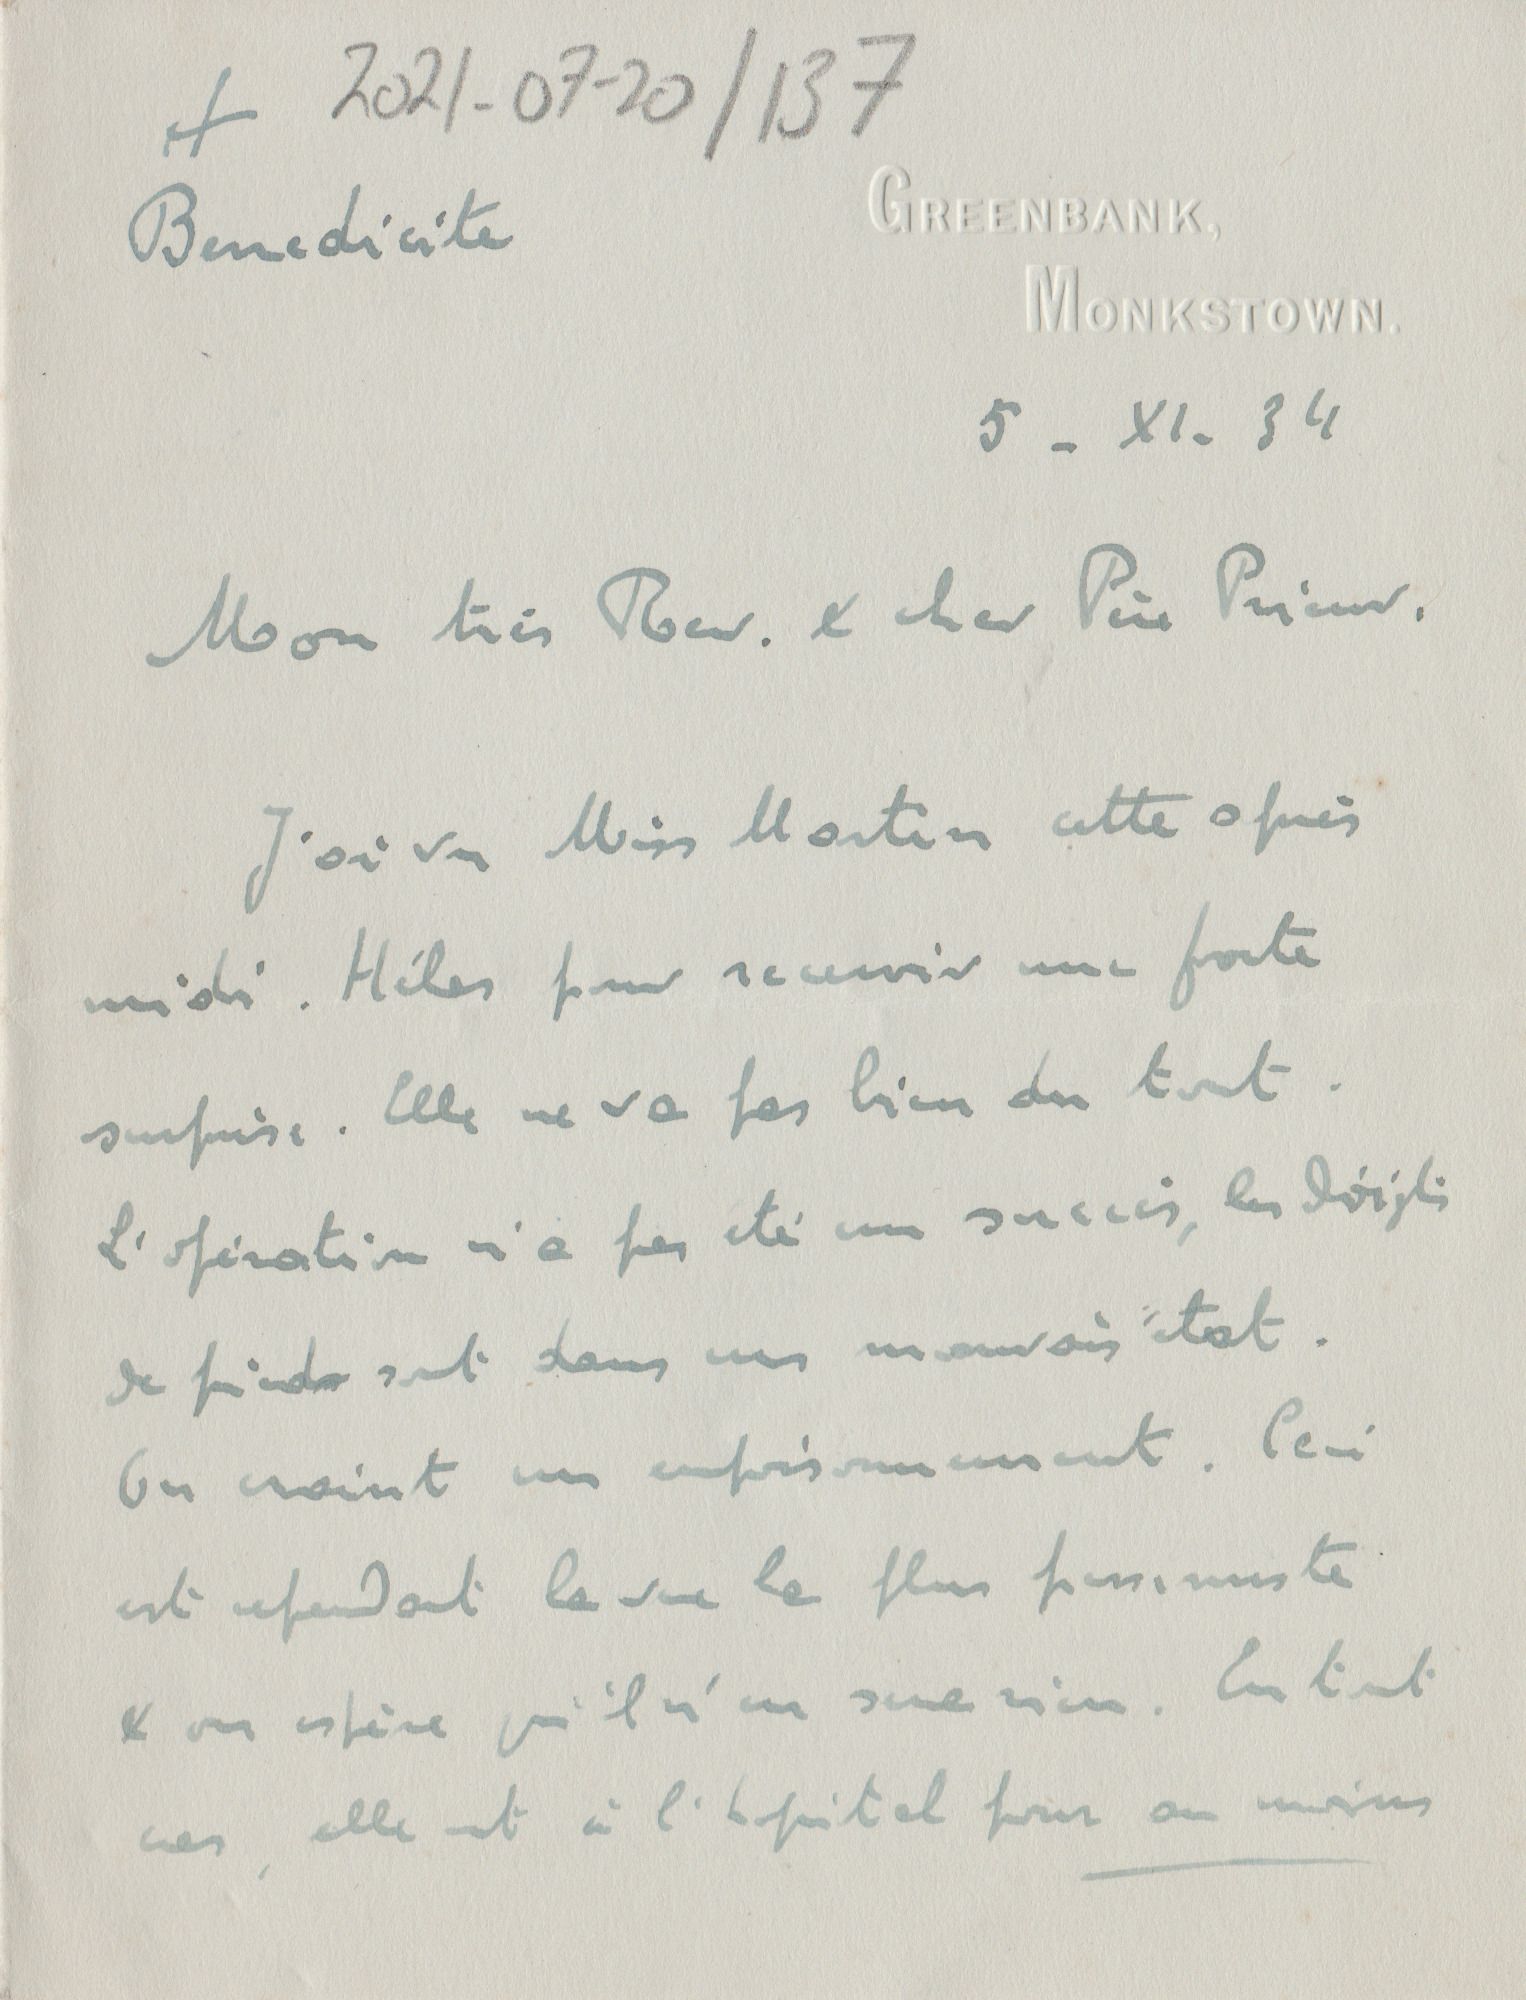 + 2021-07-20/137
Benedicite
GREENBANK,
MONKSTOWN.
5 - XI. 34
Mon très Rev. & cher Père Prieur.
J'ai vu Miss Martin cette après
midi. Hélas pour recevoir une forte
surprise. Elle ne va pas bien du tout.
L'opération n'a pas été un succès, les doigts
de pieds sont dans un mauvais état.
On craint un empoisonnement. Ceci
est cependant la vue la plus pessimiste
& on espère qu'il n'en sera rien. En tout
cas, elle est à l'hopital pour au moins